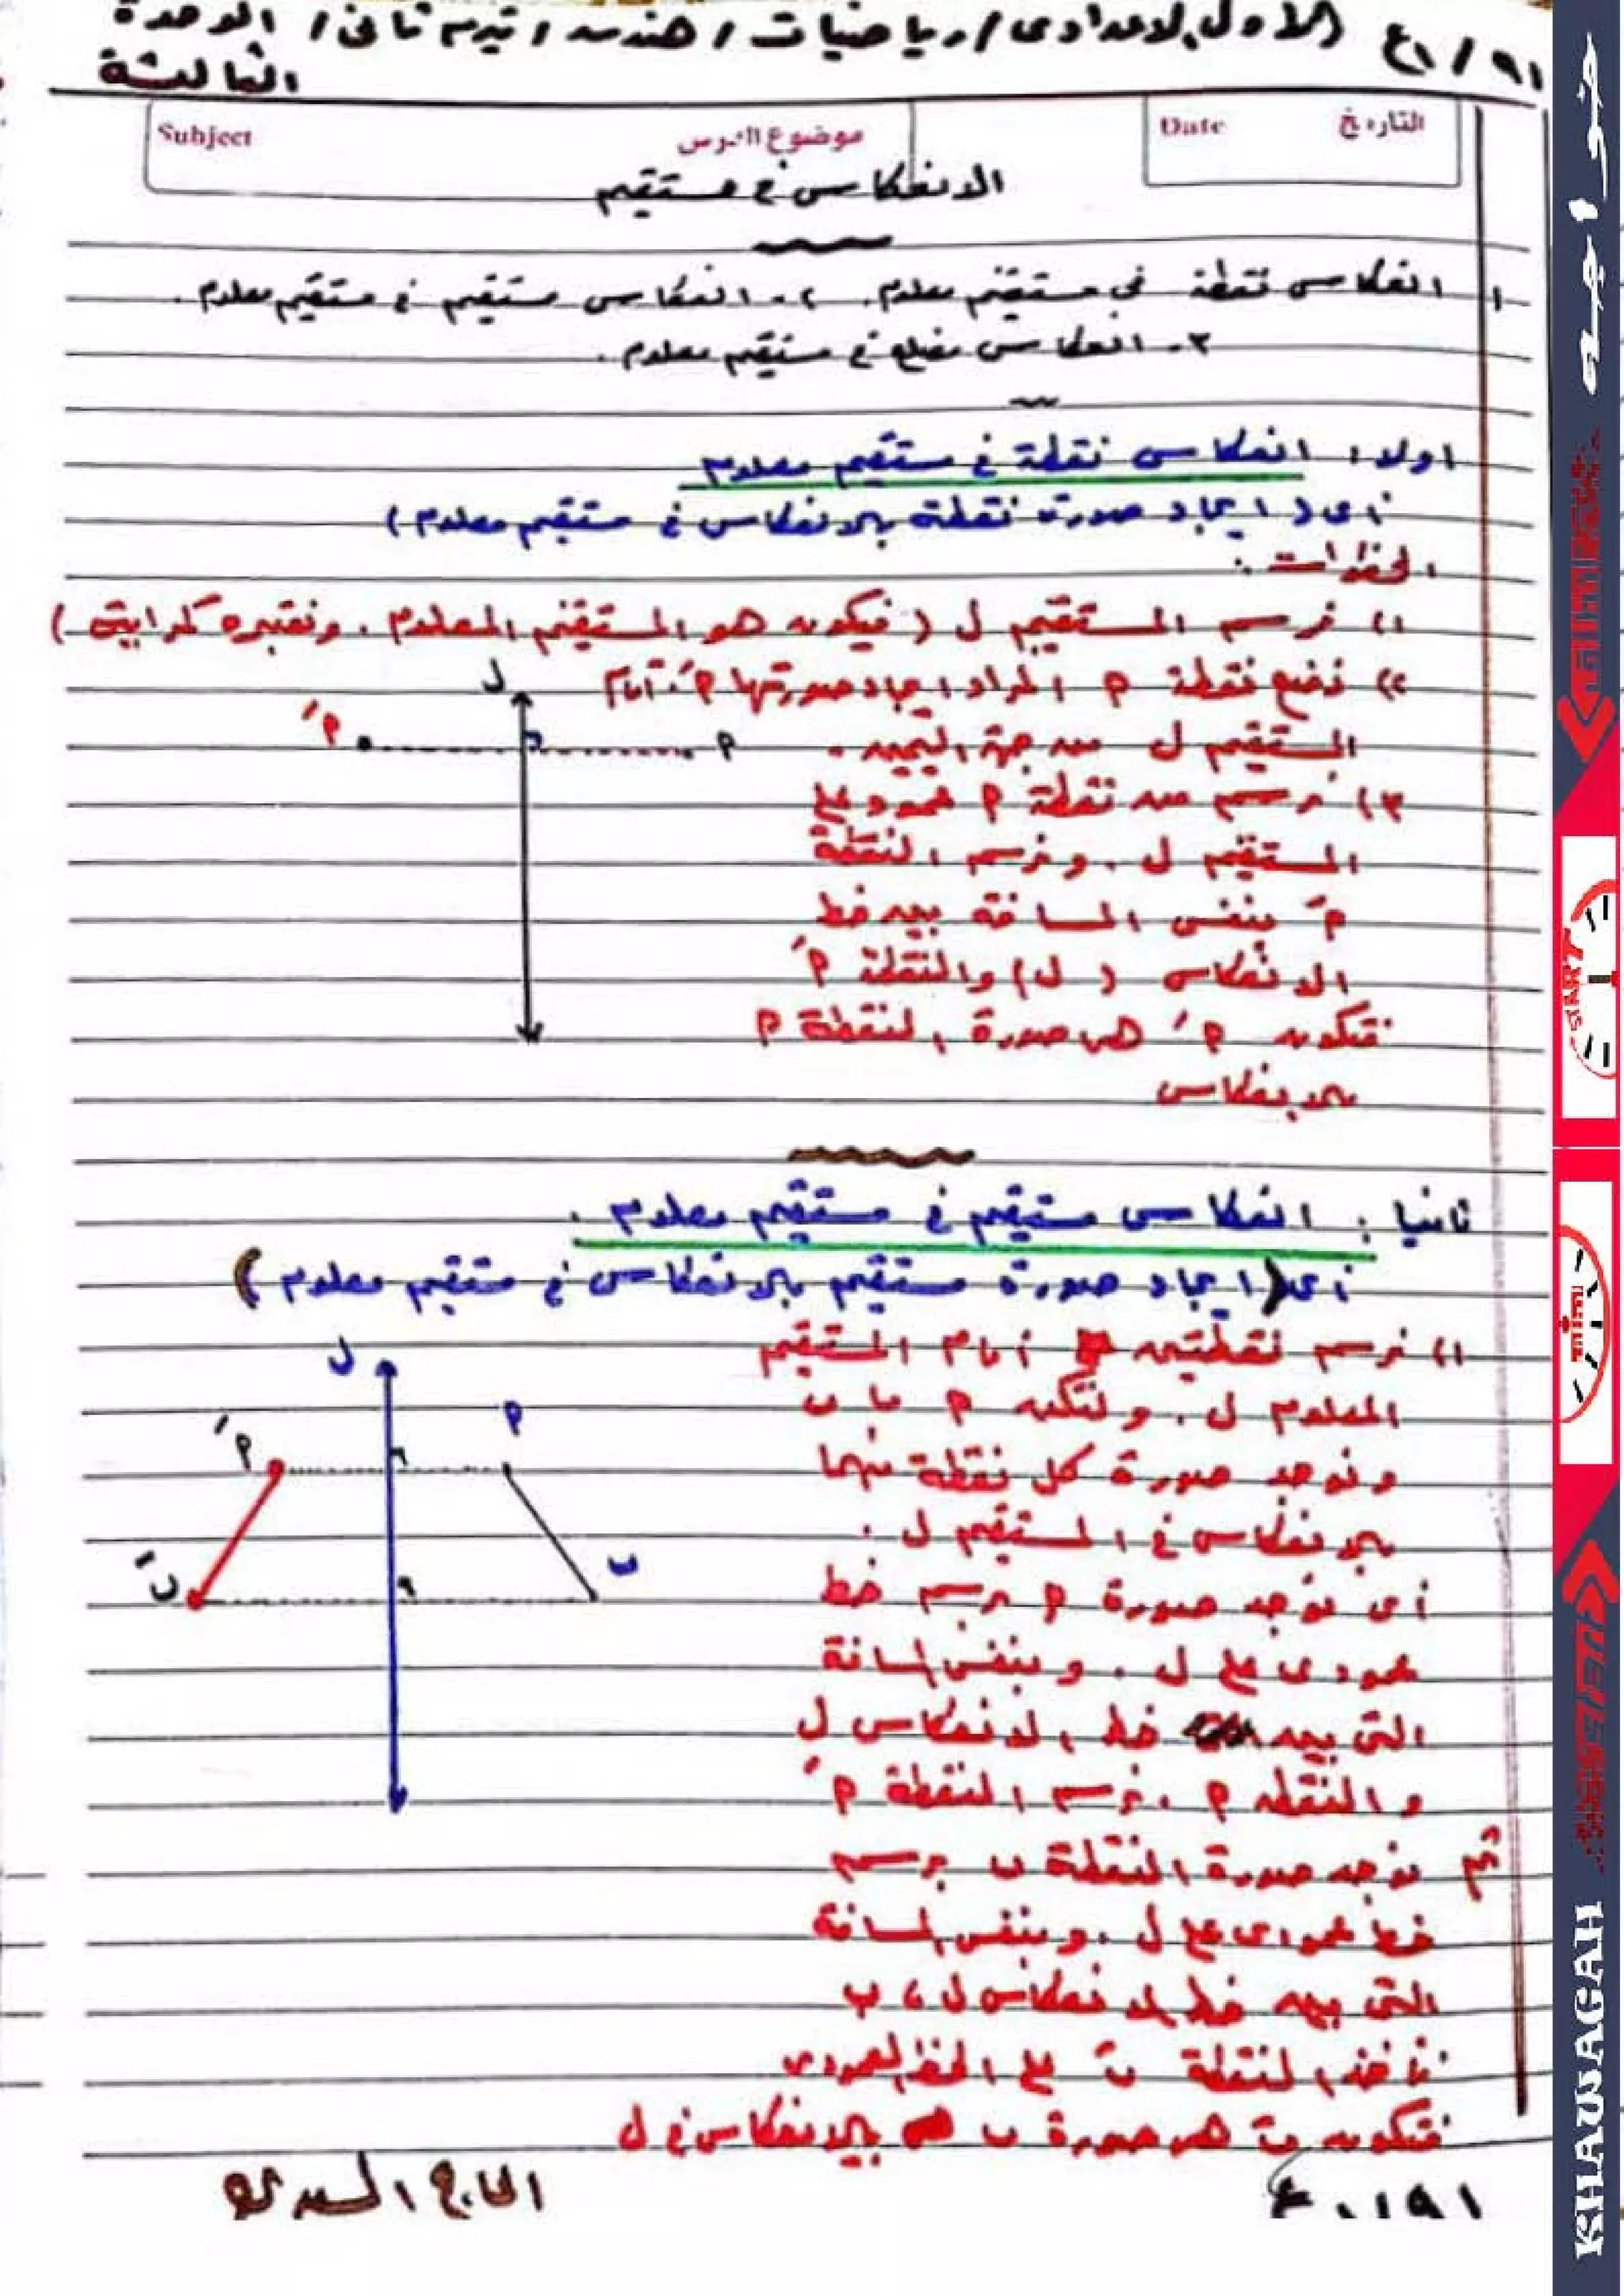 الأول الإعدادى / رياضيات / هندسه / تيرم تانى / الوحدة
الثالثة
التاريخ Date
موضوع الدرس Subject
الانعكاس فى مستقيم
١- انعكاس نقطة فى مستقيم معلوم. ٢- انعكاس مستقيم فى مستقيم معلوم.
٣- انعكاس مضلع فى مستقيم معلوم.
اولا: انعكاس نقطة فى مستقيم معلوم
أى (ايجاد صورة نقطة بالانعكاس فى مستقيم معلوم)
الخطوات:
١) نرسم المستقيم ل (فيكون هو المستقيم المعلوم. ونعتبره كمرايتى)
٢) نضع نقطة م المراد ايجاد صورتها مَ. أمام
ل
مَ م
المستقيم ل من جهة اليمين.
٣) نرسم من نقطة م عمود على
المستقيم ل. ونرسم النقطة
مَ بنفس المسافة بين خط
الانعكاس (ل) والنقطة مَ
فتكون مَ هى صورة النقطة م
بالانعكاس
ثانيا: انعكاس مستقيم فى مستقيم معلوم.
أى (ايجاد صورة مستقيم بالانعكاس فى مستقيم معلوم)
١) نرسم نقطتين أمام المستقيم
ل
المعلوم ل. ولتكن م ، ب
م
مَ
ونوجد صورة كل نقطة منهما
بالانعكاس فى المستقيم ل.
ب
بَ
أى نوجد صورة م برسم خط
عمودى على ل. وبنفس المسافة
التى بين خط الانعكاس ل
والنقطه م. نرسم النقطة مَ
ثم نوجد صورة النقطة ب برسم
خط عمودى على ل. وبنفس المسافة
التى بين خط الانعكاس ل، ب
نأخذ النقطة بَ على الخط العمودى
فتكون بَ هى صورة ب بالانعكاس فى ل
خواجه
START
KHAWAGAH